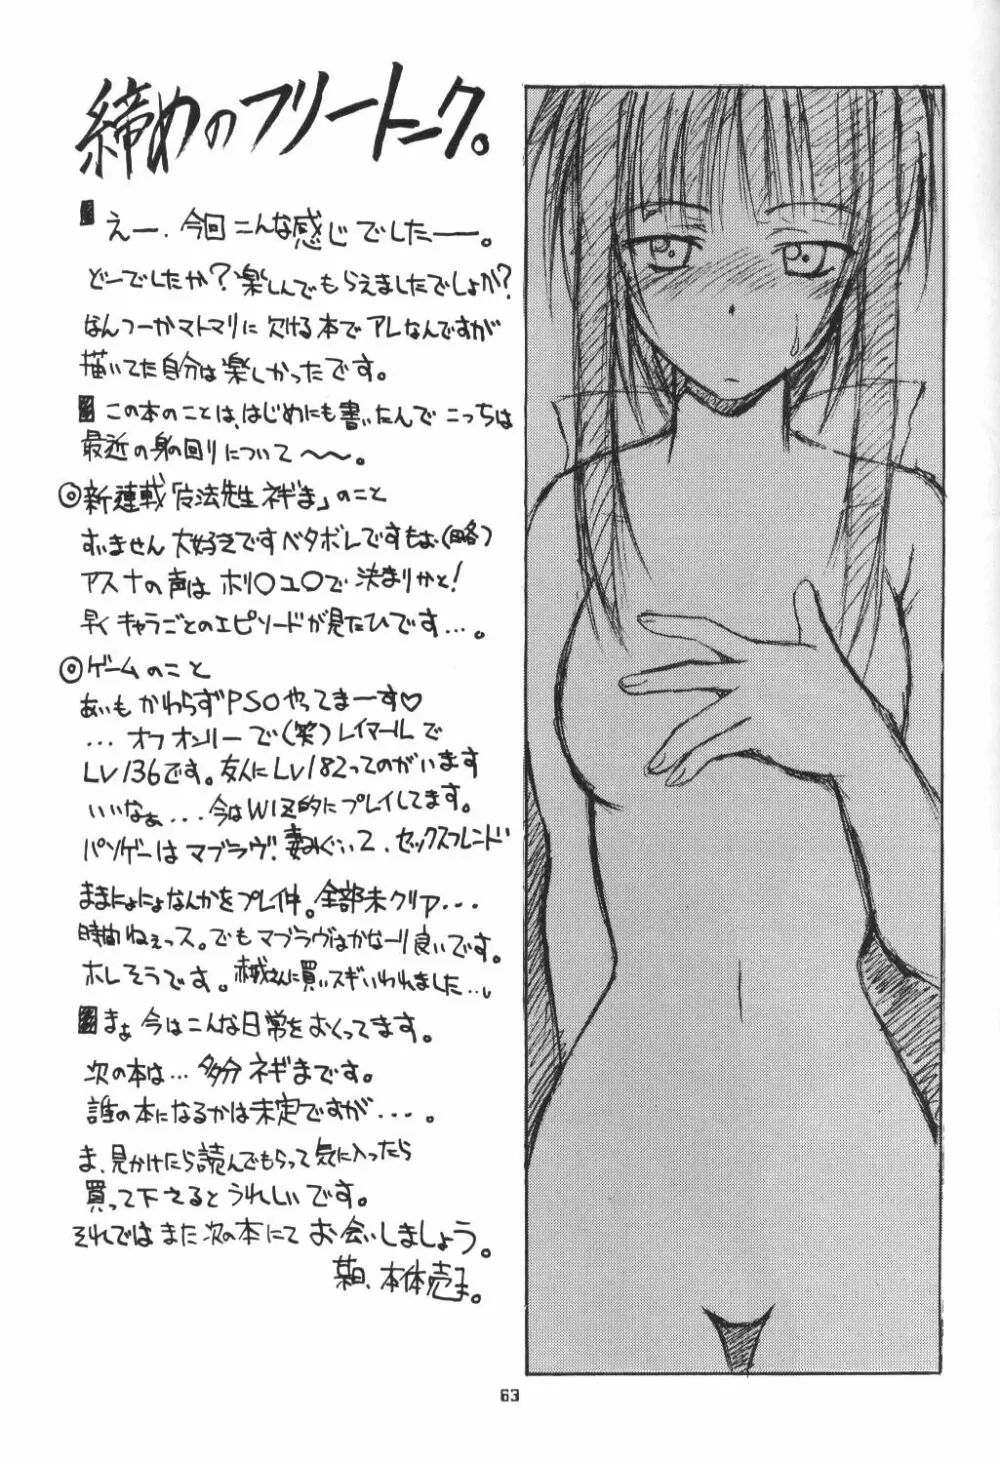 締めのフリートーク。
えー、今回こんな感じでしたーー。
どーでしたか?楽しんでもらえましたでしょか?
なんつーかマトマリに欠ける本でアレなんですが
描いてた自分は楽しかったです。
この本のことは、はじめにも書いたんでこっちは
最近の身の回りについて〜〜。
◎新連載「魔法先生ネギま」のこと
すいません大好きですベタボレですもぉ(略)
アスナの声はホリ○ユ○で決まりかと!
早くキャラごとのエピソードが見たひです…。
◎ゲームのこと
あいもかわらずPSOやってまーす♡
…オフオンリーで(笑)レイマールで
LV136です。友人にLV182ってのがいます
いいなぁ...今はWIZ的にプレイしてます。
パソゲーはマブラヴ、妻みぐい2、セックスフレンド
ままにょにょなんかをプレイ中。全部未クリア...
時間ねぇっス。でもマブラヴはかなーり良いです。
ホレそうです。さんに買いスギいわれました…。
まぁ今はこんな日常をおくってます。
次の本は…多分ネギまです。
誰の本になるかは未定ですが...。
ま、見かけたら読んでもらって気に入ったら
買って下さるとうれしいです。
それではまた次の本にてお会いしましょう。
某日、本体売ま。
63